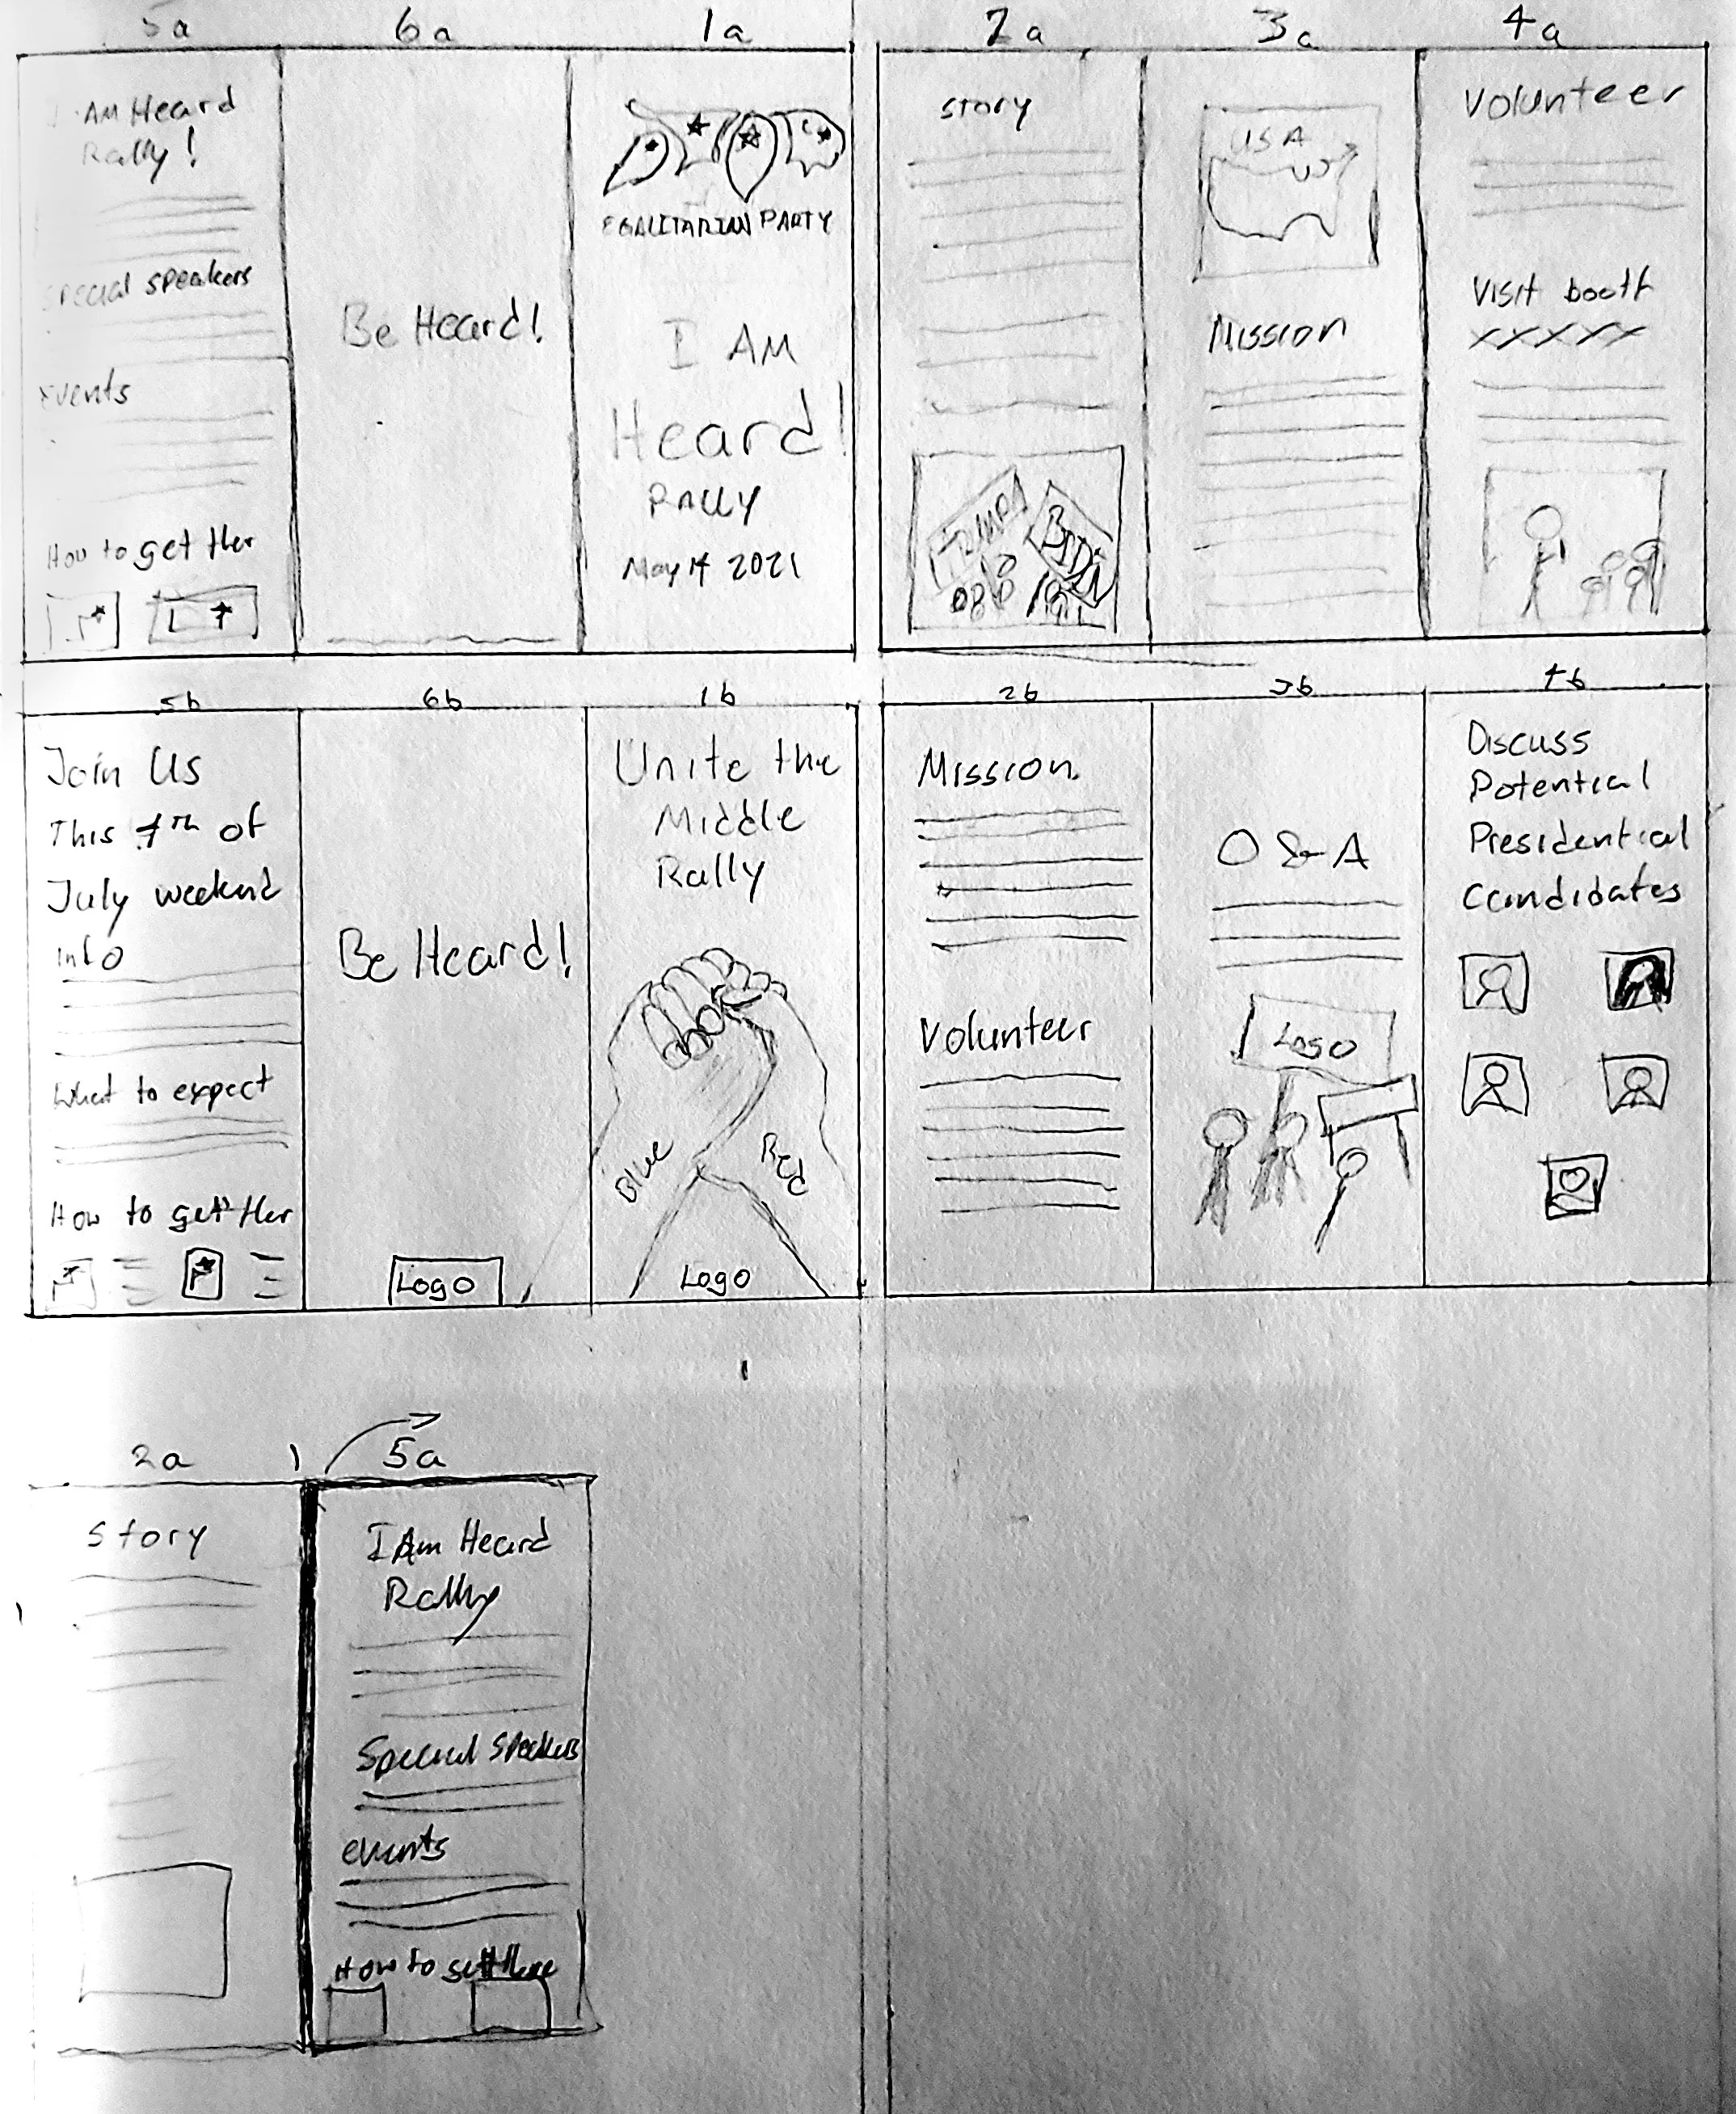 5a
6a
1a
2a
3a
4a
I AM Heard
Rally!
special speakers
Events
How to get ther
Be Heard!
EGALITARIAN PARTY
I AM
Heard!
RALLY
May 14 2021
story
TRUMP
BIDEN
USA
Mission
Volunteer
Visit booth
XXXXX
5b
6b
1b
2b
3b
4b
Join Us
This 4th of
July weekend
info
What to expect
How to get ther
Be Heard!
Logo
Unite the
Middle
Rally
Blue
Red
Logo
Mission
Volunteer
Q & A
Logo
Discuss
Potential
Presidential
Candidates
2a
5a
Story
I Am Heard
Rally
Special Speakers
events
How to get there